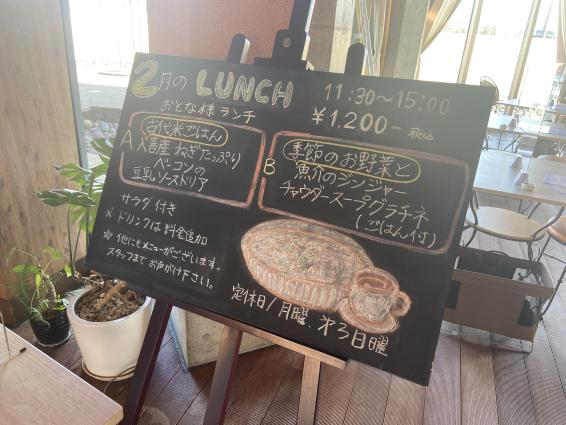 2月の LUNCH
11:30〜15:00
おとな様ランチ
¥1,200- 税込
A 古代米ごはん
入善産ねぎたっぷり
ベーコンの
豆乳ソースドリア
B 季節のお野菜と
魚介のジンジャー
チャウダースープグラチネ
(ごはん付)
サラダ付き
※ドリンクは料金追加
☆他にもメニューがございます。
スタッフまでお声がけ下さい。
定休日/月曜、第3日曜